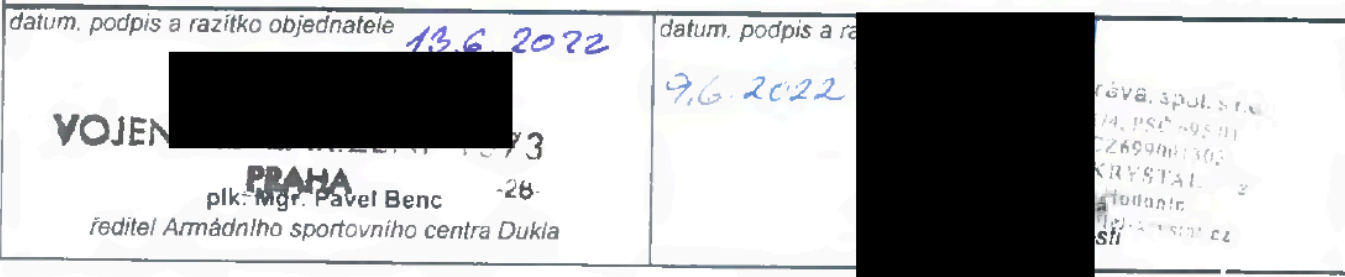 datum, podpis a razítko objednatele 13.6. 2022
VOJEN
PRAHA
plk. Mgr. Pavel Benc -28-
ředitel Armádního sportovního centra Dukla
datum, podpis a ra
9.6.2022
ráva, spol. s r.o.
PSČ 695 01
CZ699001303
KRYSTAL
Hodonín
sti